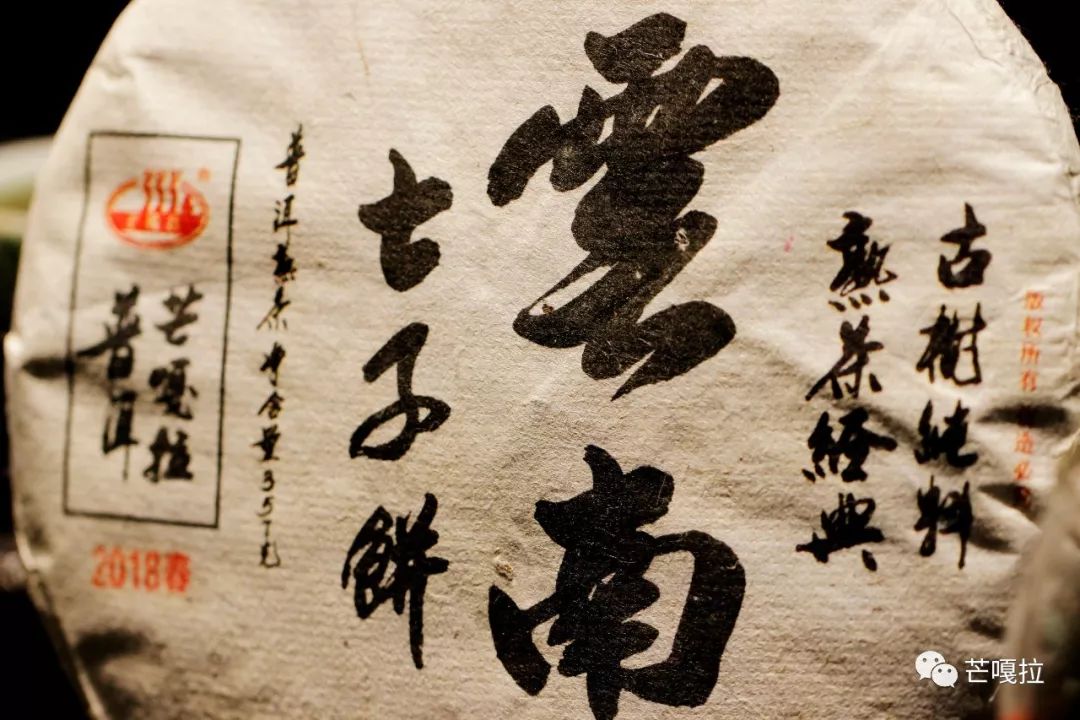 版权所有
古樹純料
熟茶經典
雲南
七子餅
普洱熟茶净含量357克
®
芒嘎拉
普洱
2018春
芒嘎拉